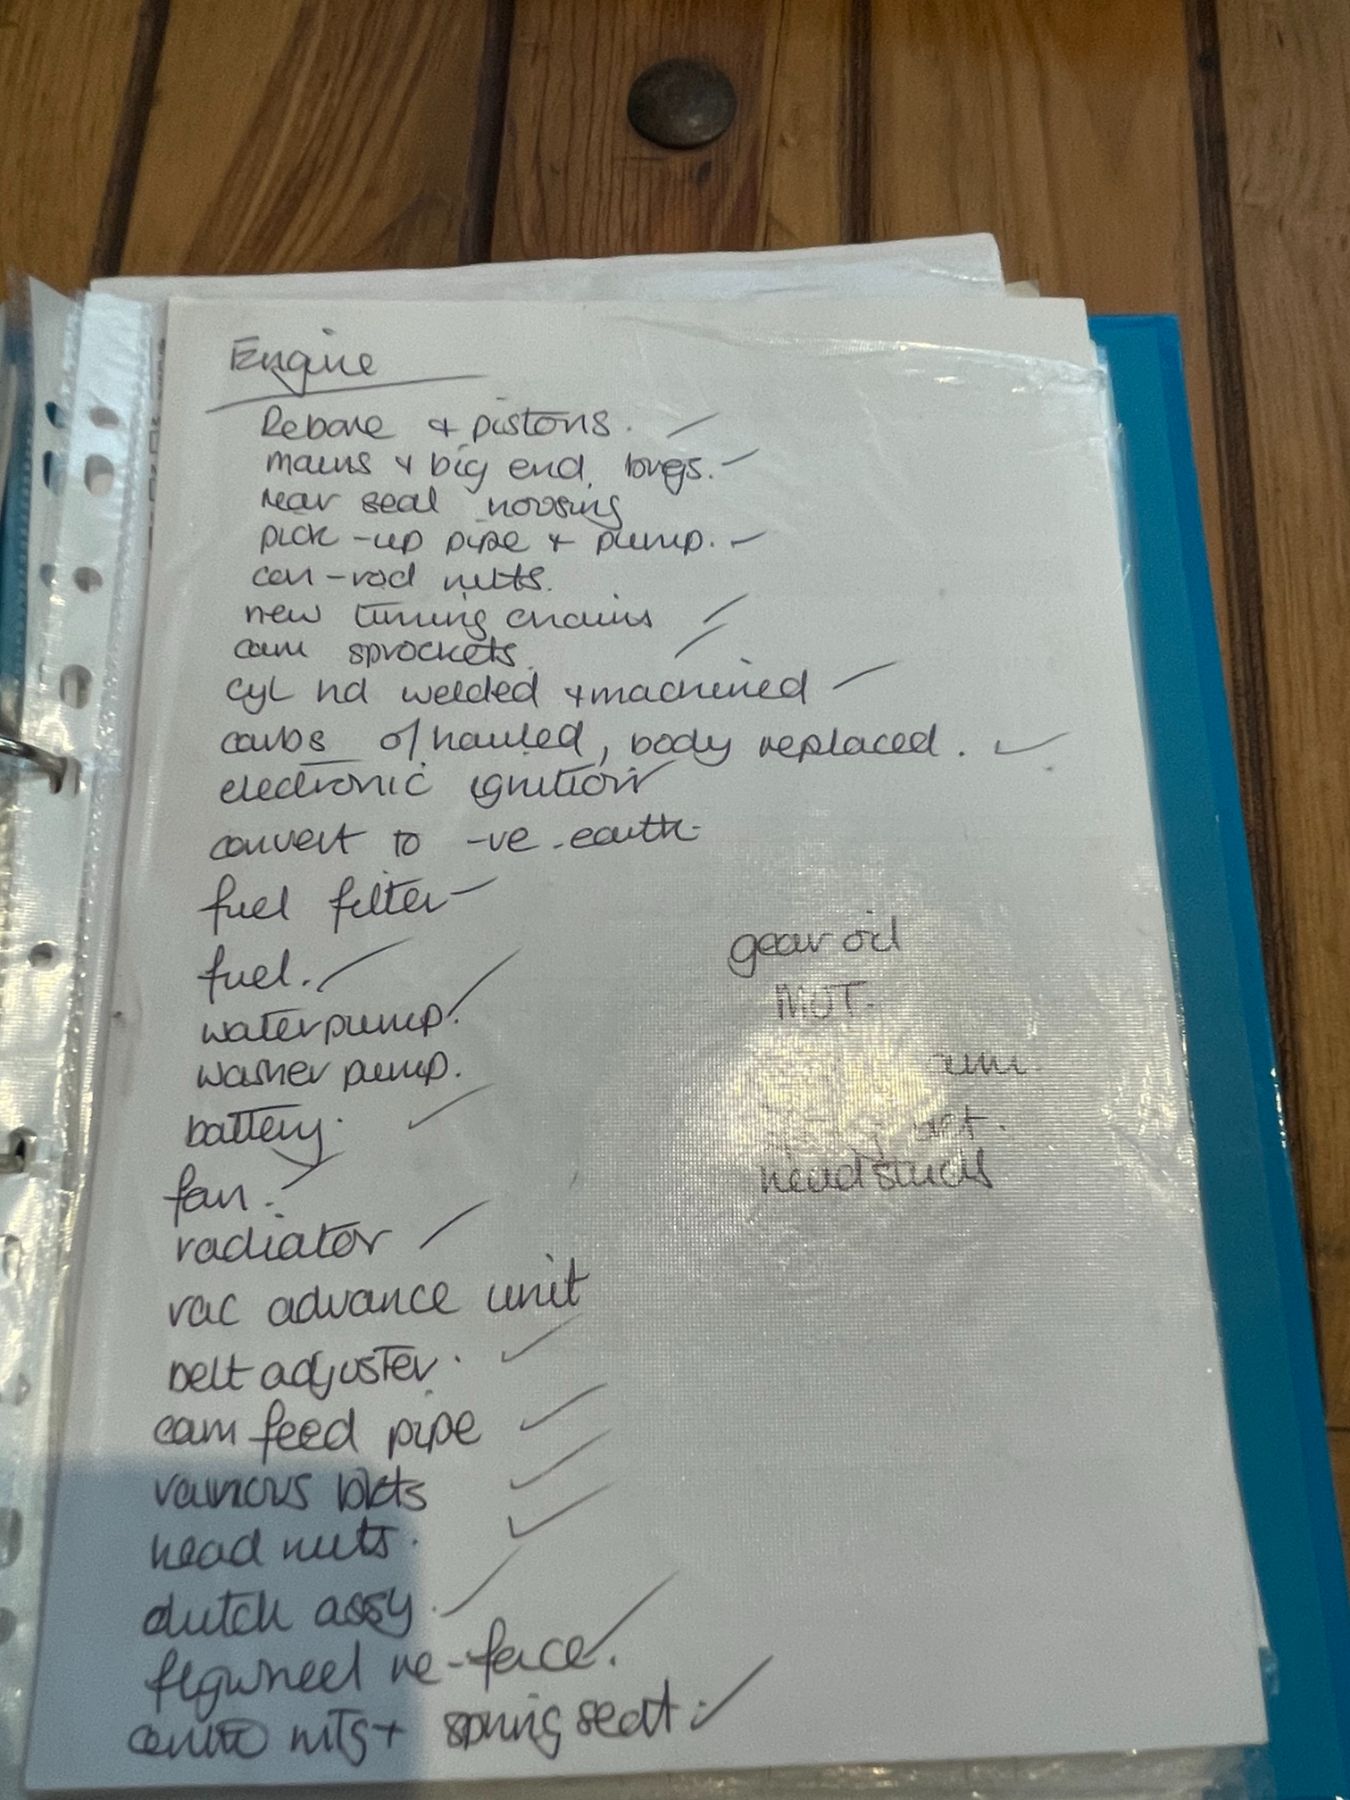 Engine
Rebore & pistons.
mains & big end brgs.
rear seal housing
pick-up pipe + pump.
con-rod nuts.
new timing chains
cam sprockets
cyl hd welded & machined
carbs o/hauled, body replaced.
electronic ignition
convert to -ve earth
fuel filter
fuel.
waterpump.
washer pump.
battery.
fan.
radiator
vac advance unit
belt adjuster.
cam feed pipe
various bkts
head nuts.
clutch assy.
flywheel re-face.
centre mtg + spring seat.
gear oil
MOT.
head studs